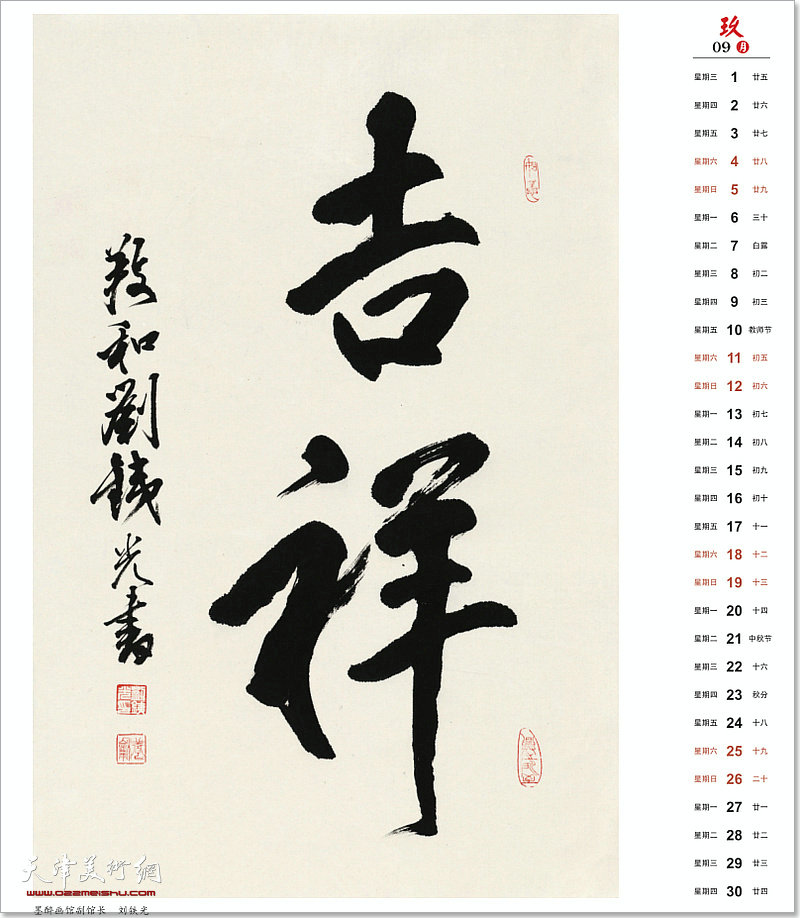 吉祥
和劉鐵光書
玖
09 月
星期三 1 廿五
星期四 2 廿六
星期五 3 廿七
星期六 4 廿八
星期日 5 廿九
星期一 6 三十
星期二 7 白露
星期三 8 初二
星期四 9 初三
星期五 10 教师节
星期六 11 初五
星期日 12 初六
星期一 13 初七
星期二 14 初八
星期三 15 初九
星期四 16 初十
星期五 17 十一
星期六 18 十二
星期日 19 十三
星期一 20 十四
星期二 21 中秋节
星期三 22 十六
星期四 23 秋分
星期五 24 十八
星期六 25 十九
星期日 26 二十
星期一 27 廿一
星期二 28 廿二
星期三 29 廿三
星期四 30 廿四
天津美術網
www.022meishu.com
墨醉画馆副馆长 刘铁光